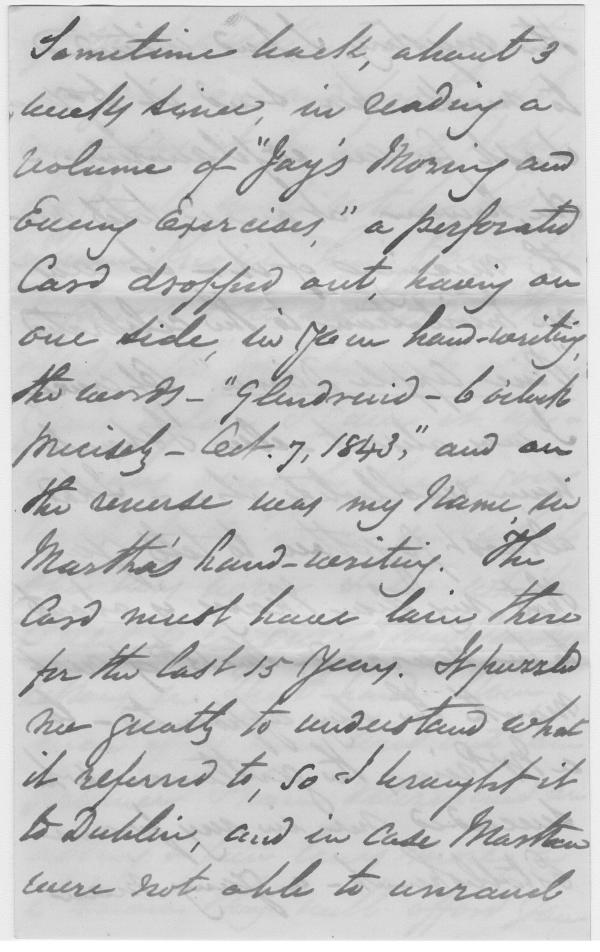 Sometime back, about 3
weeks since, in reading a
volume of "Jay's Morning and
Evening Exercises," a perforated
Card dropped out, having on
one side, in your hand-writing,
the words - "Glendruid - 6 o'clock
precisely - Oct. 7, 1843," and on
the reverse was my Name, in
Martha's hand-writing. The
Card must have lain there
for the last 15 Years. It puzzled
me greatly to understand what
it referred to, so I brought it
to Dublin, and in case Martha
were not able to unravel